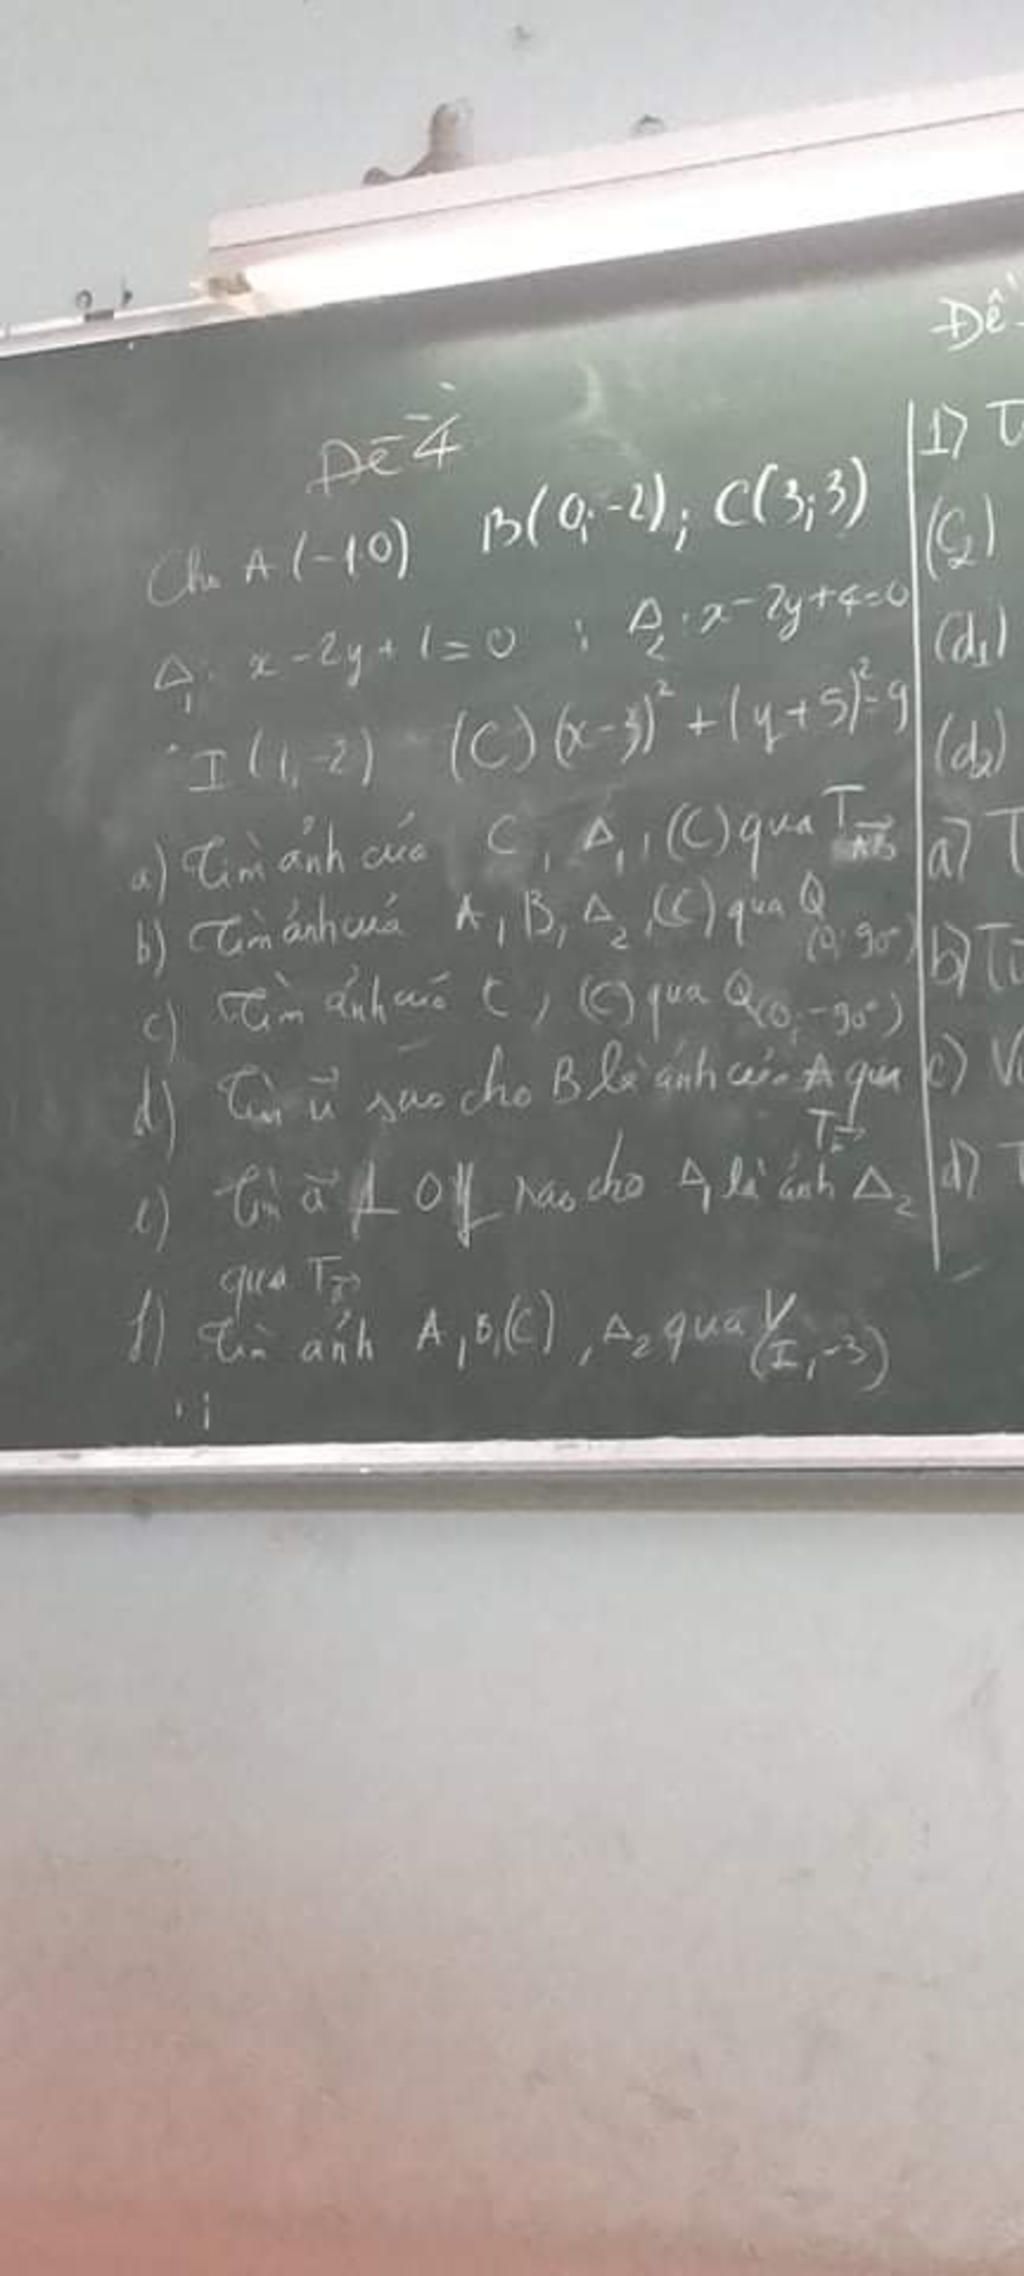 Đề 4
Cho A(-1,0) B(0;-2); C(3;3)
Δ₁: x-2y+1=0 ; Δ₂: x-2y+4=0
I(1,-2) (C) (x-3)²+(y+5)²=9
a) Tìm ảnh của C, Δ₁, (C) qua T_AB→
b) Tìm ảnh của A, B, Δ₂, (C) qua Q(0;90°)
c) Tìm ảnh của C, (C) qua Q(0;-90°)
d) Tìm u→ sao cho B là ảnh của A qua
T_u→
e) Tìm a→ ⊥ Oy sao cho Δ₁ là ảnh Δ₂
qua T_a→
f) Tìm ảnh A, B, (C), Δ₂ qua V(I,-3)
Đề
1) T
(C₂)
(d₁)
(d₂)
a) T
b) Tì
c) V
d) T